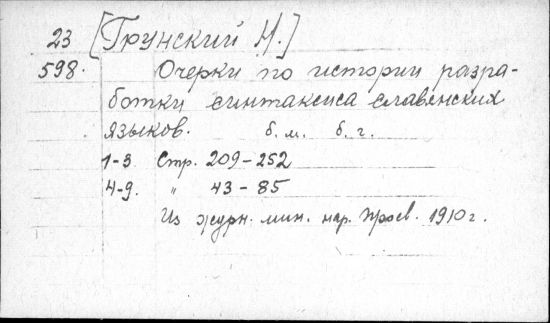 23 [Грунский Н.]
598. Очерки по истории разра-
ботки синтаксиса славенских
языков. б. м. б. г.
1-3 Стр. 209-252
4-9. " 43-85
Из журн. мин. нар. просв. 1910 г.